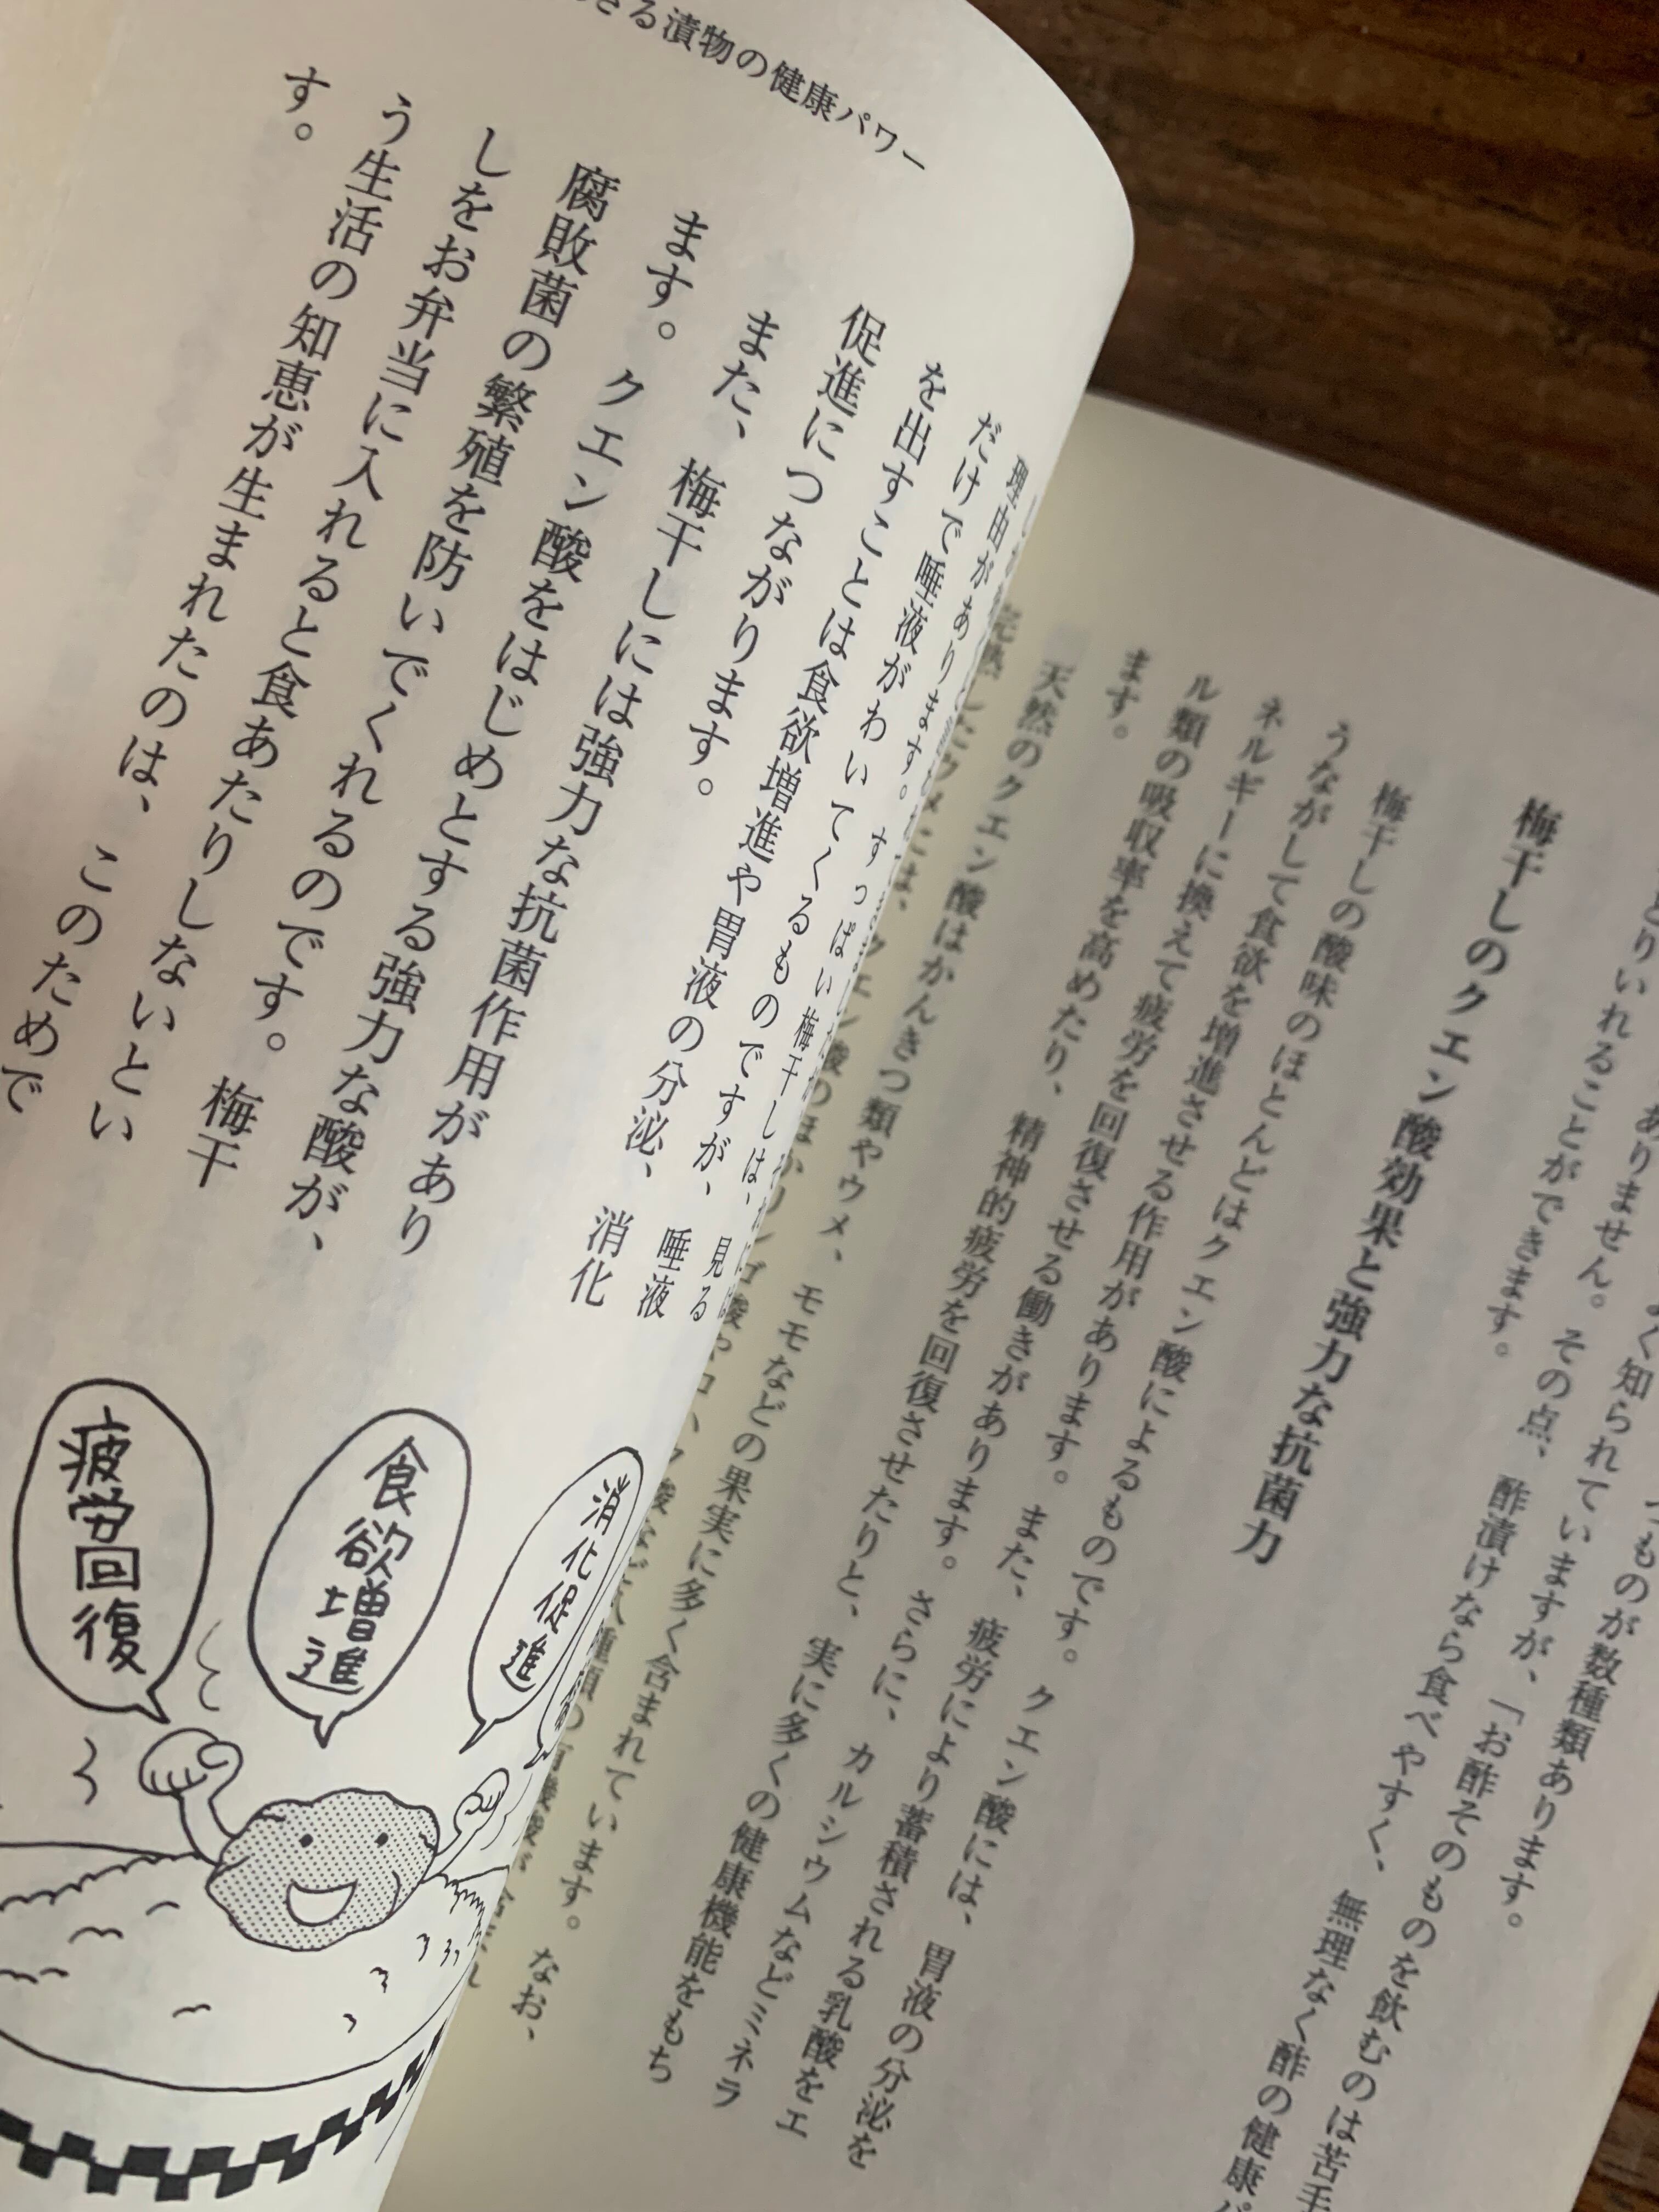 つものが数種類あります。
よく知られていますが、「お酢そのものを飲むのは苦手
ありません。その点、酢漬けなら食べやすく、無理なく酢の健康パ
とりいれることができます。
梅干しのクエン酸効果と強力な抗菌力
梅干しの酸味のほとんどはクエン酸によるものです。クエン酸には、胃液の分泌を
うながして食欲を増進させる作用があります。また、疲労により蓄積される乳酸をエ
ネルギーに換えて疲労を回復させる働きがあります。さらに、カルシウムなどミネラ
ル類の吸収率を高めたり、精神的疲労を回復させたりと、実に多くの健康機能をもち
ます。
天然のクエン酸はかんきつ類やウメ、モモなどの果実に多く含まれています。なお、
完熟したウメには、クエン酸のほかリンゴ酸や
きる漬物の健康パワー
理由があります。すっぱい梅干しは、見る
だけで唾液がわいてくるものですが、唾液
を出すことは食欲増進や胃液の分泌、消化
促進につながります。
また、梅干しには強力な抗菌作用があり
ます。クエン酸をはじめとする強力な酸が、
腐敗菌の繁殖を防いでくれるのです。梅干
しをお弁当に入れると食あたりしないとい
う生活の知恵が生まれたのは、このためで
す。
消化促進
食欲増進
疲労回復